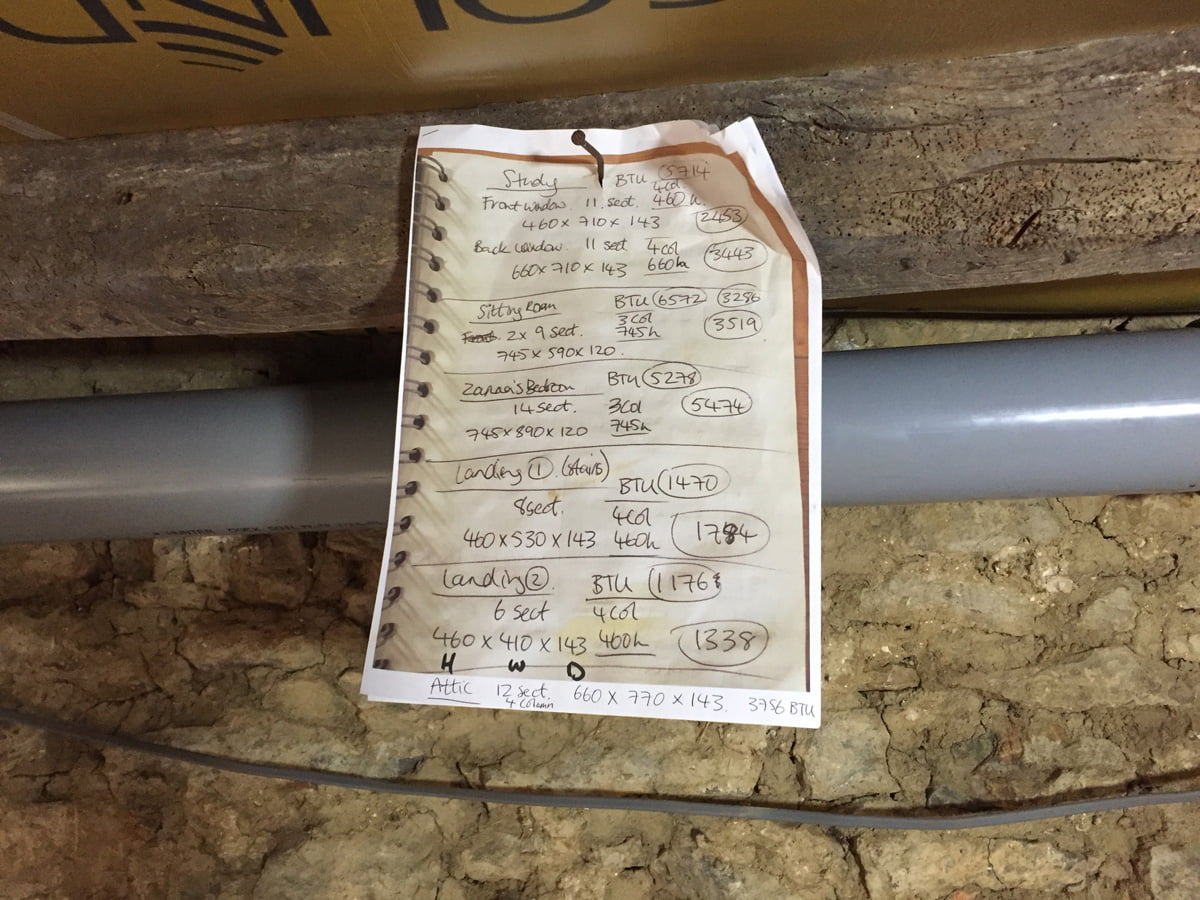 Study BTU 5714
4col
Front window. 11. sect. 460 h.
460 x 710 x 143 2453
Back window. 11 sect 4col 3443
660 x 710 x 143 660h
Sitting Room BTU 6572 3286
3col
2x 9 sect. 745h 3519
745 x 590 x 120.
Bedroom BTU 5278
14 sect. 3col 5474
745 x 890 x 120 745h
Landing 1. (stairs)
BTU 1470
8sect. 4col
460 x 530 x 143 460h 1784
Landing 2. BTU 1176
6 sect 4col
460 x 410 x 143 460h 1338
H W D
Attic 12 sect. 660 x 770 x 143. 3756 BTU
4 column